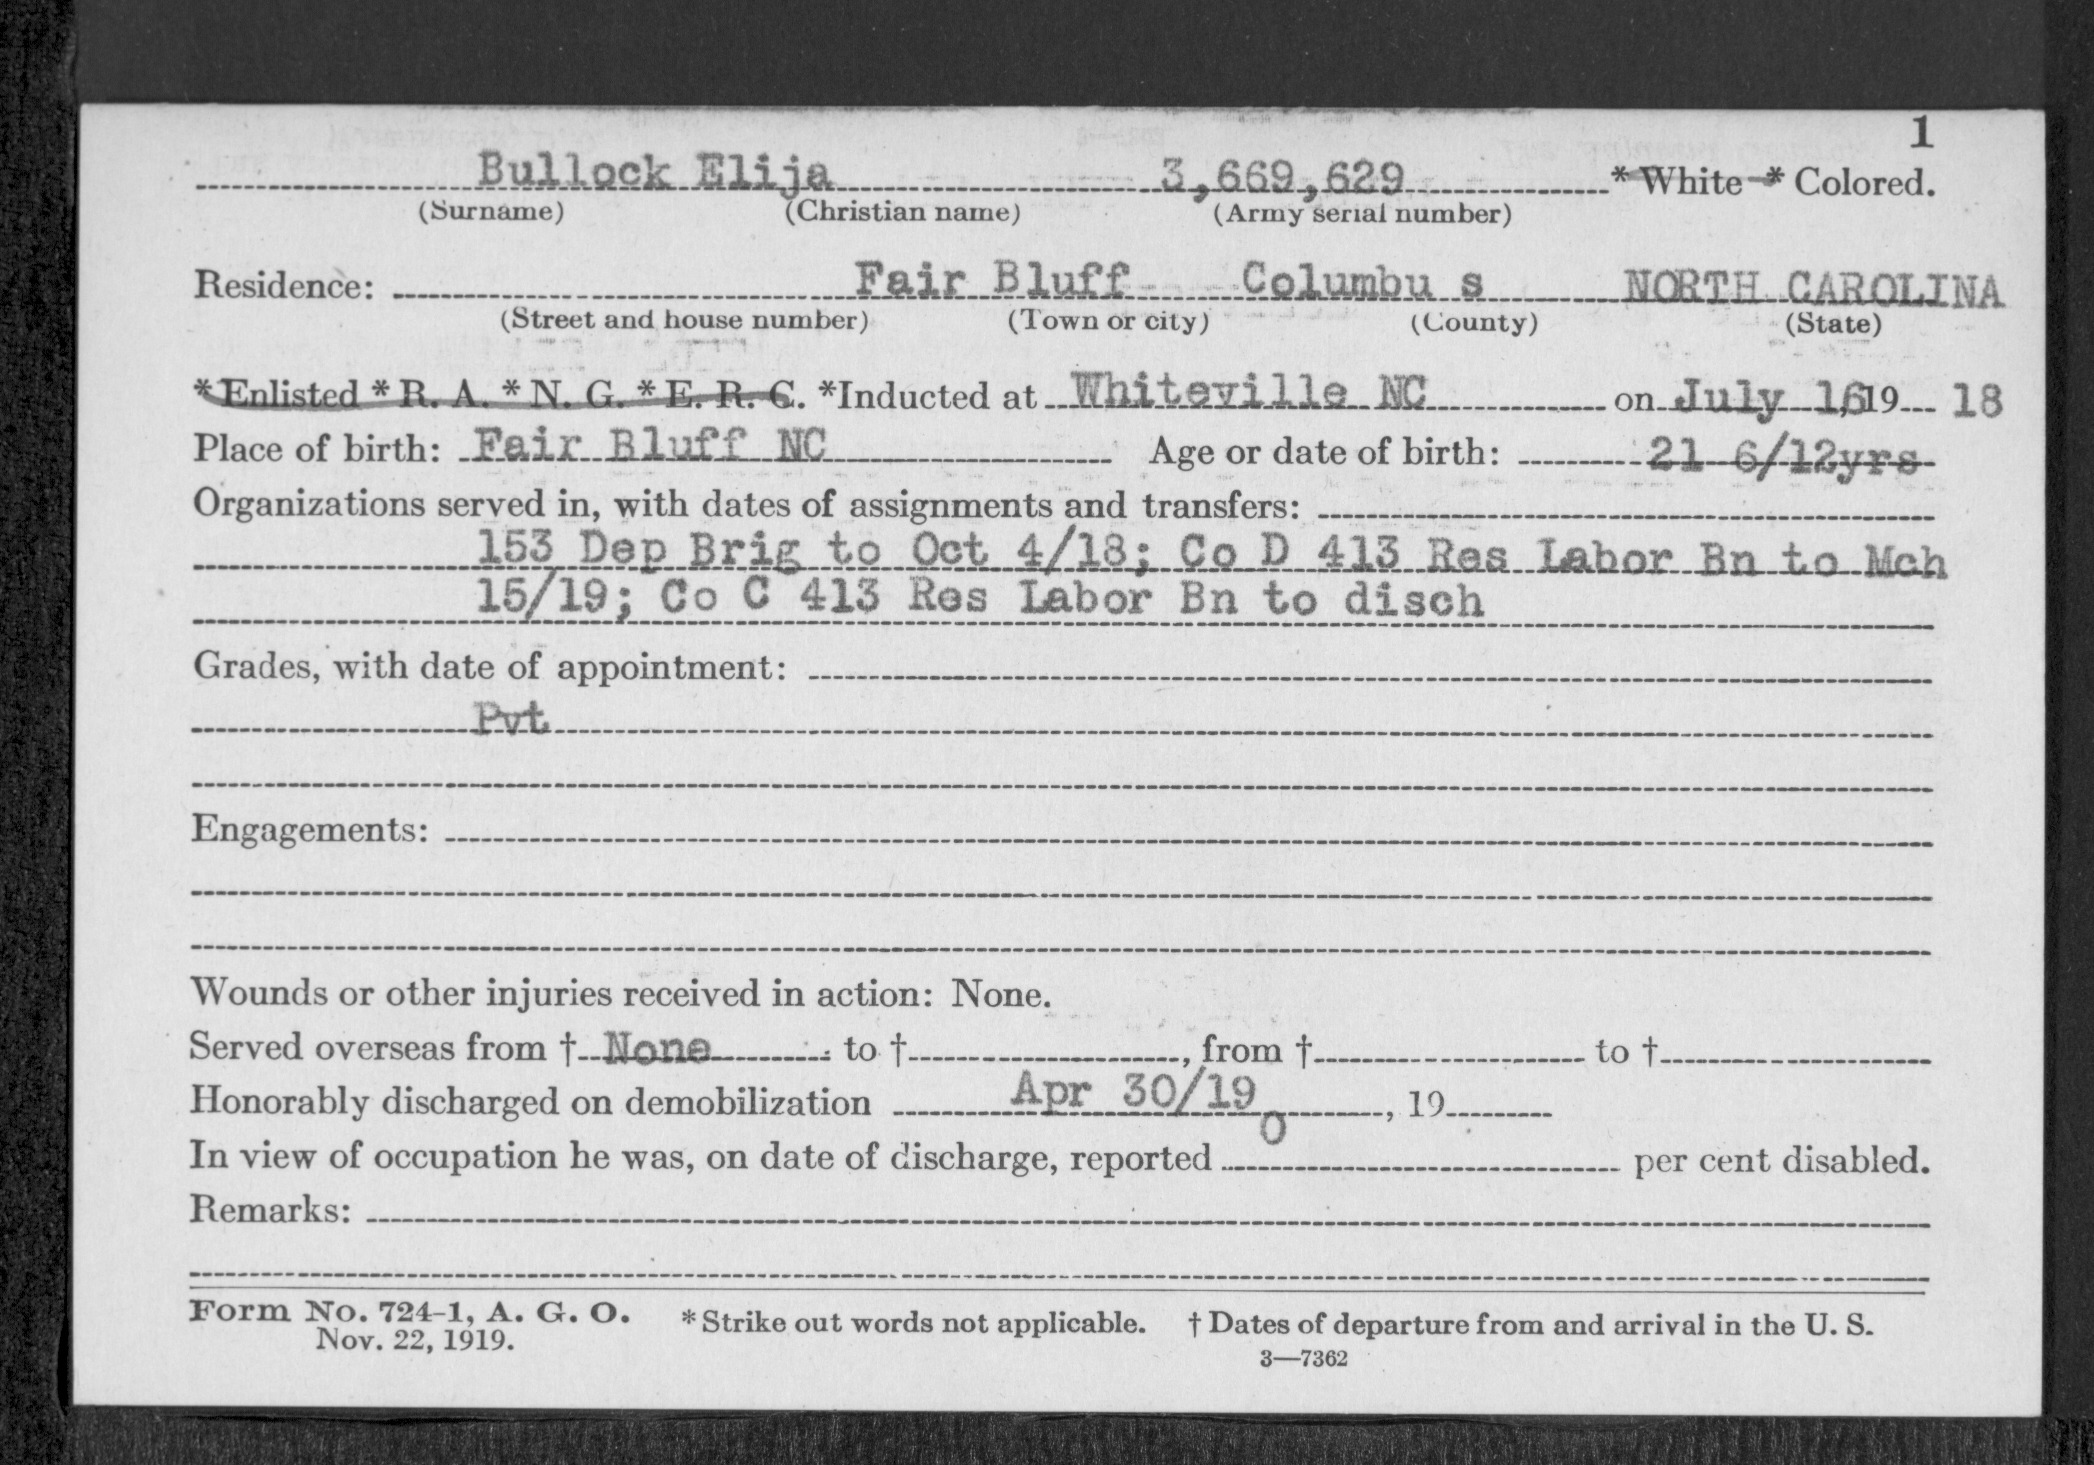 1
Bullock Elija 3,669,629 * White * Colored.
(Surname) (Christian name) (Army serial number)
Residence: Fair Bluff Columbu s NORTH CAROLINA
(Street and house number) (Town or city) (County) (State)
*Enlisted *R. A. *N. G. *E. R. C. *Inducted at Whiteville NC on July 16, 19 18
Place of birth: Fair Bluff NC Age or date of birth: 21 6/12yrs
Organizations served in, with dates of assignments and transfers:
153 Dep Brig to Oct 4/18; Co D 413 Res Labor Bn to Mch
15/19; Co C 413 Res Labor Bn to disch
Grades, with date of appointment:
Pvt
Engagements:
Wounds or other injuries received in action: None.
Served overseas from † None to †, from † to †
Honorably discharged on demobilization Apr 30/19, 19
In view of occupation he was, on date of discharge, reported 0 per cent disabled.
Remarks:
Form No. 724-1, A. G. O. *Strike out words not applicable. † Dates of departure from and arrival in the U. S.
Nov. 22, 1919.
3—7362